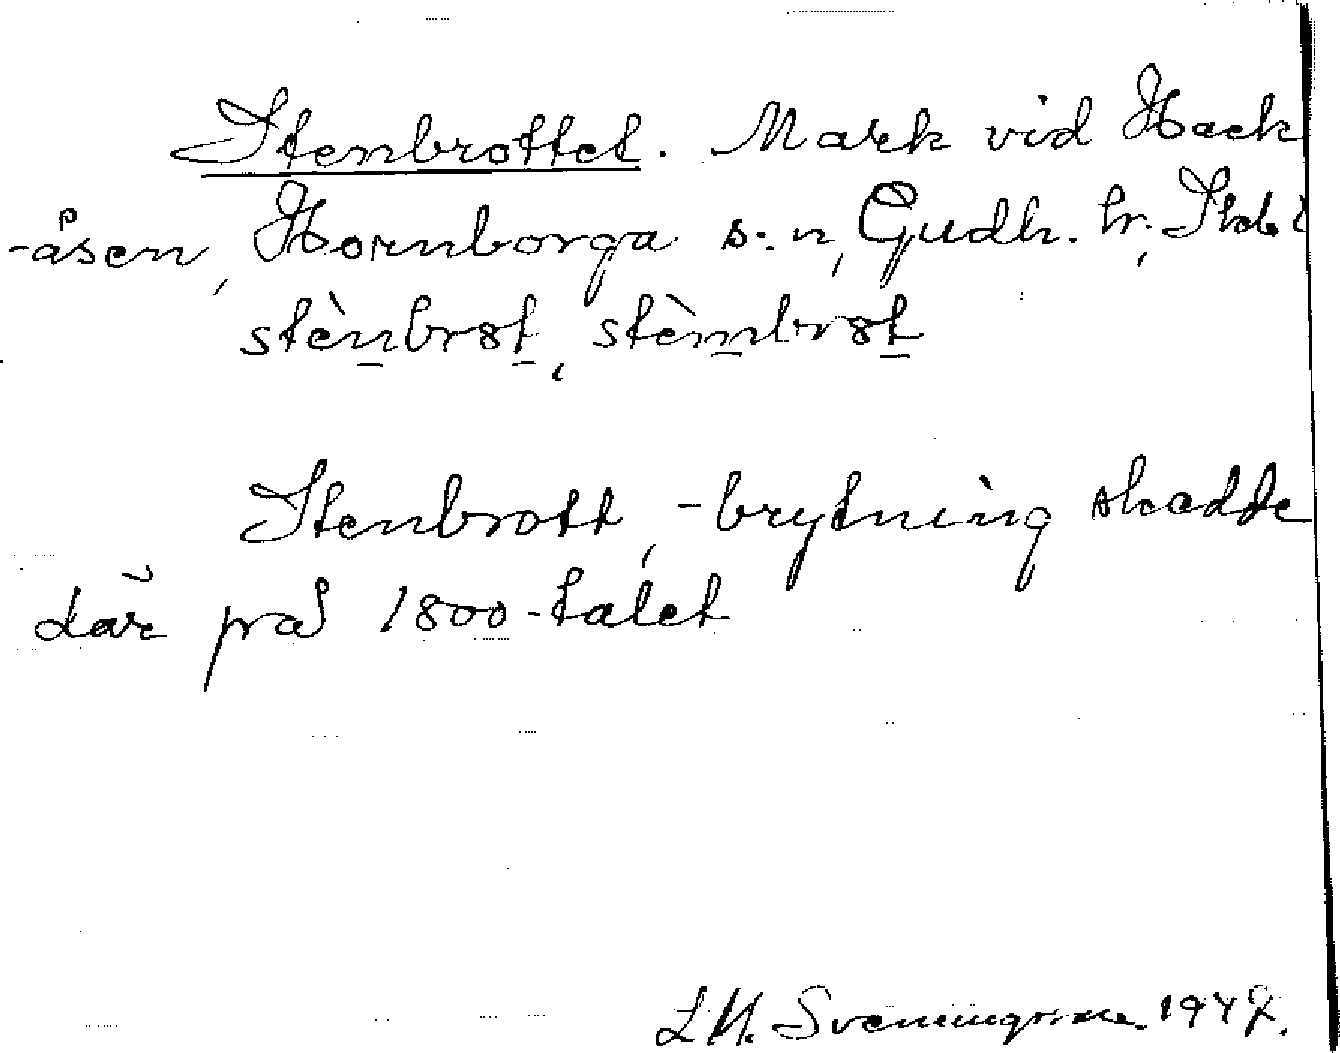 Stenbrottet. Mark vid Hack
-åsen, Hornborga s:n, Gudh. hr, Skb
stènbrot, stèmbrot
Stenbrott, -brytning skedde
där på 1800-talet
Sveningsson. 1947.